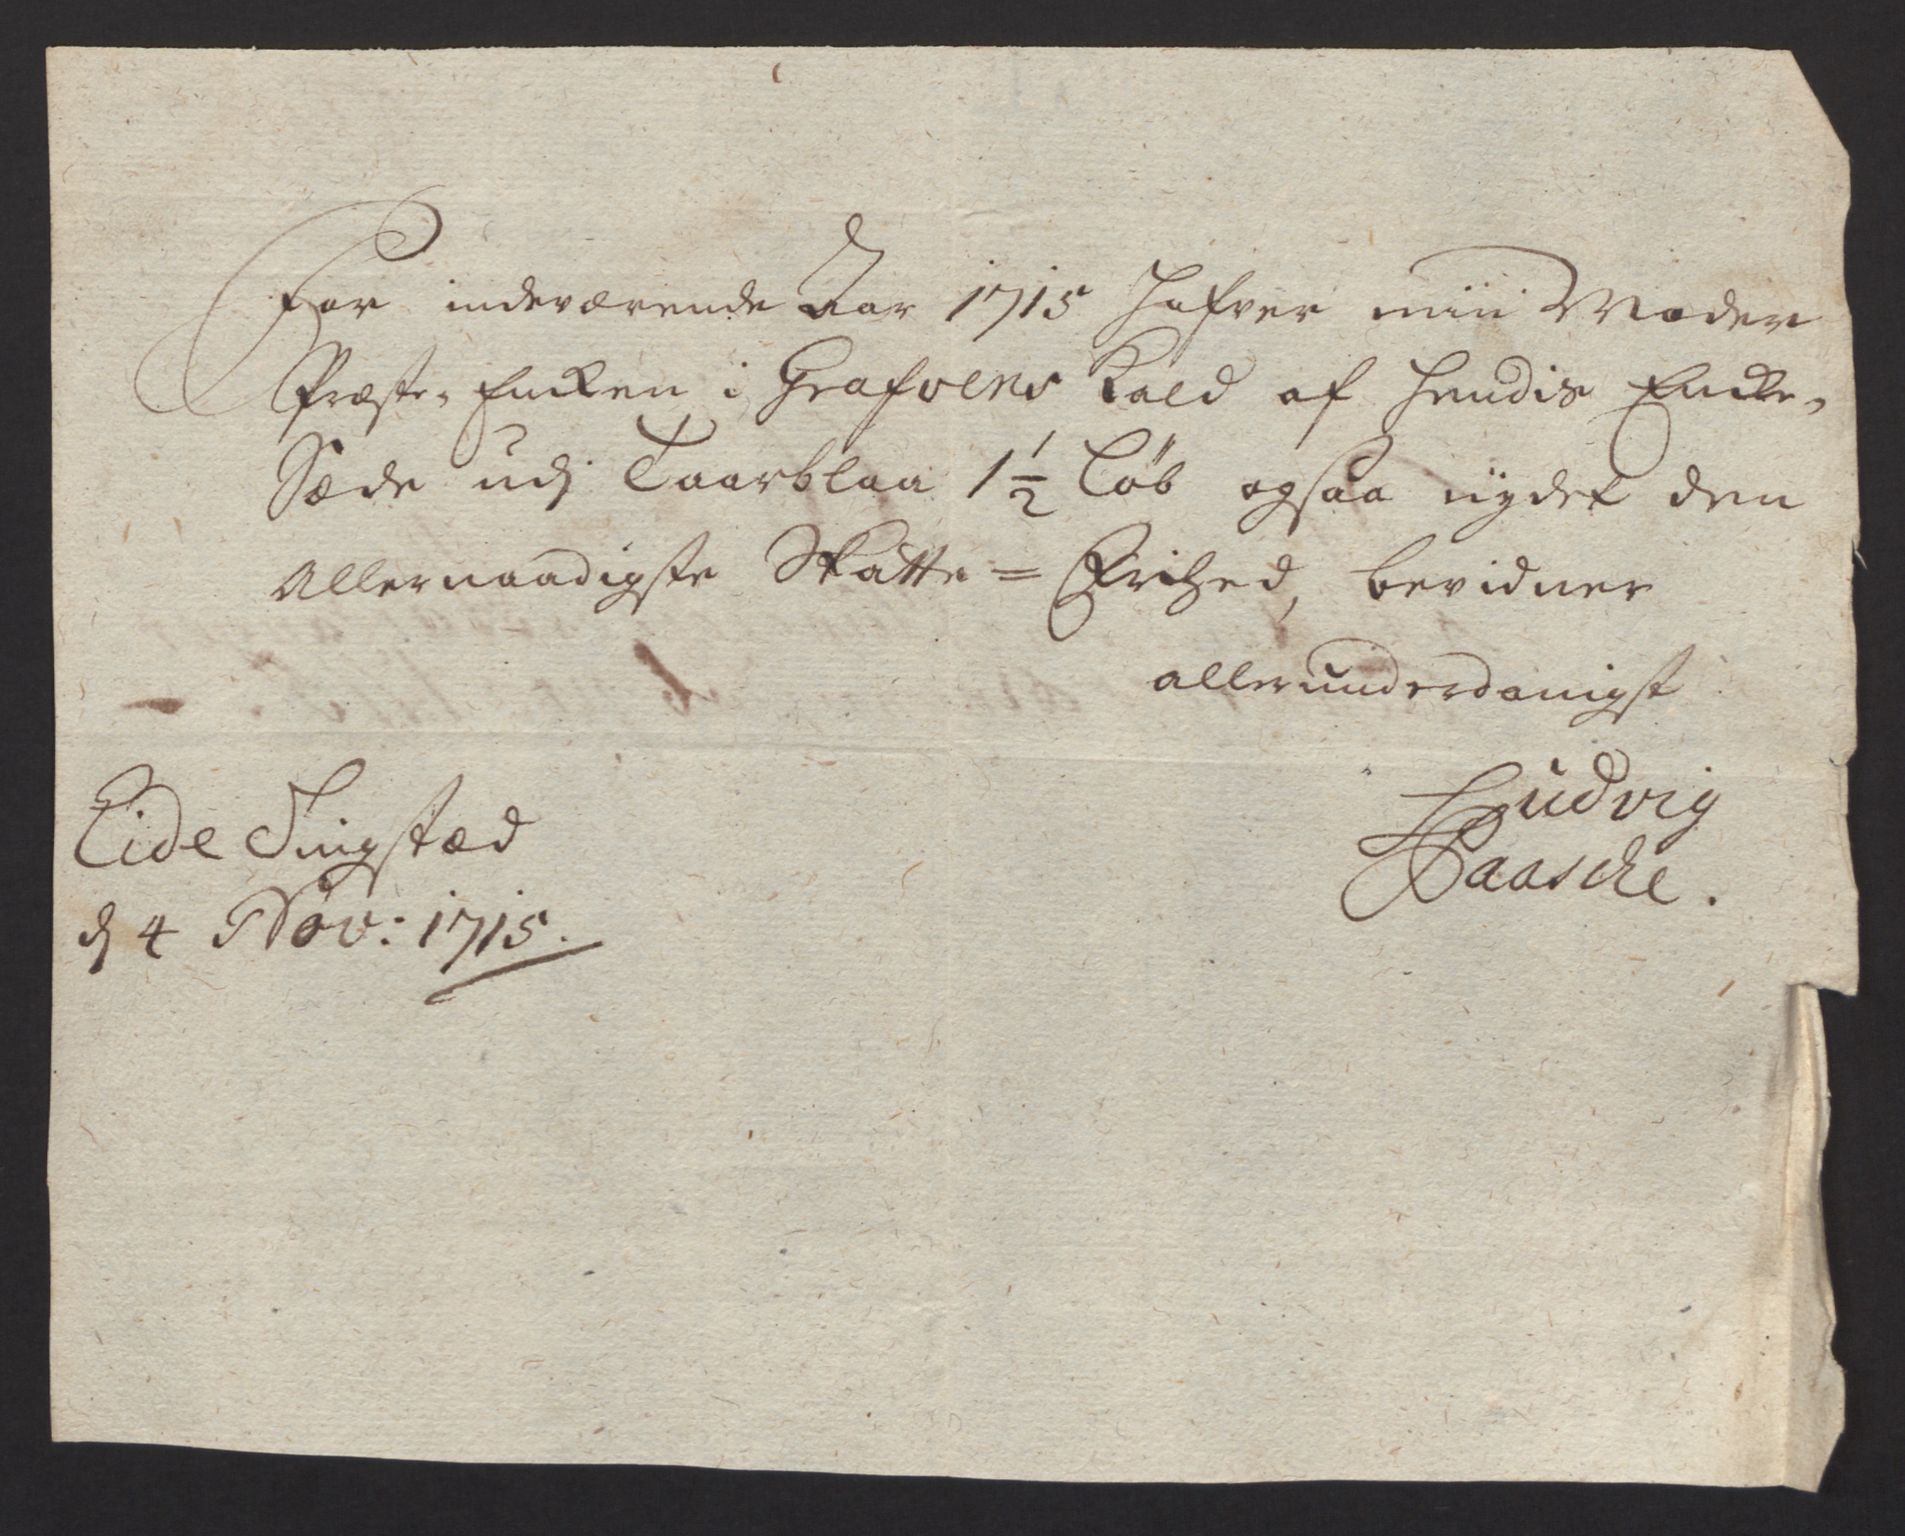 For indeværende Aar 1715 hafver min Moder
Præste-Encken i Grafvens Kald af hendis Encke-
Sæde udj Taarblaa 1½ Løb ogsaa nÿdet den
Allernaadigste Skatte=Frihed, bevidner
allerunderdanigst
Ludvig
Paasche.
Eide Tingstæd
dj 4 Nov: 1715.